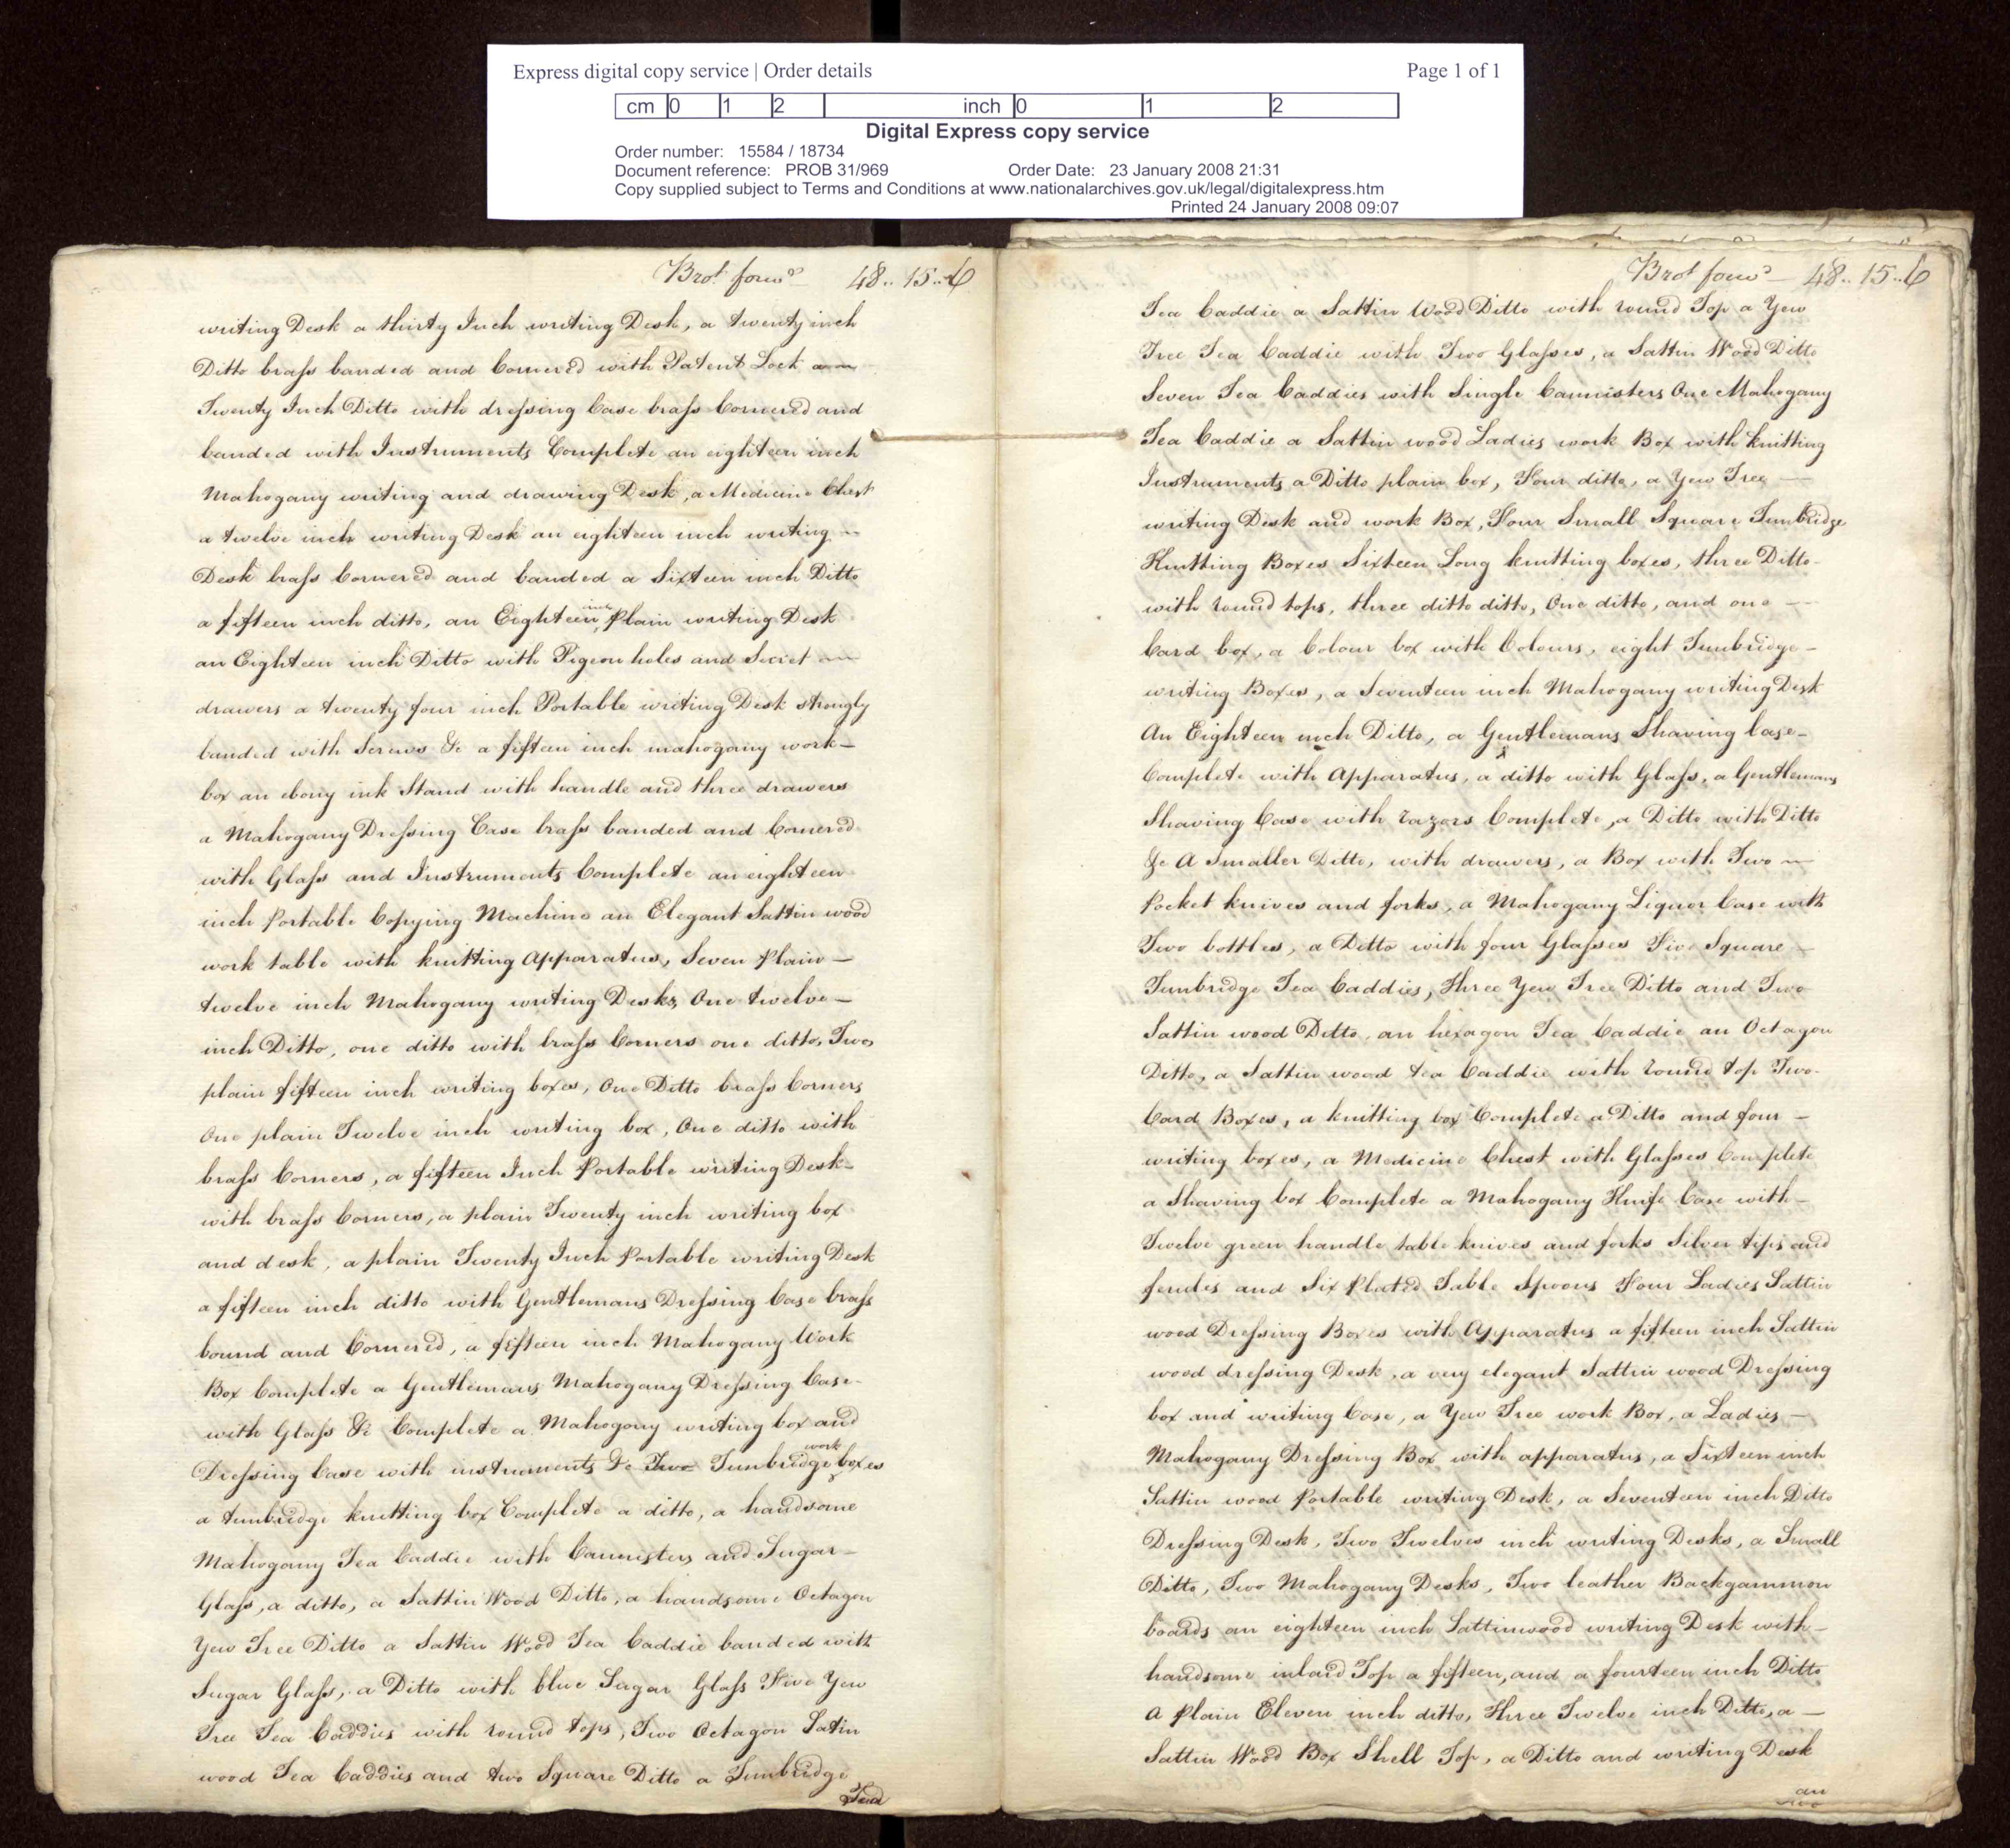 Express digital copy service | Order details Page 1 of 1
cm 0 1 2 inch 0 1 2
Digital Express copy service
Order number: 15584 / 18734
Document reference: PROB 31/969 Order Date: 23 January 2008 21:31
Copy supplied subject to Terms and Conditions at www.nationalarchives.gov.uk/legal/digitalexpress.htm
Printed 24 January 2008 09:07
Brot. forwd 48.. 15..6
writing Desk a thirty Inch writing Desk, a twenty inch
Ditto brass banded and Cornered with Patent Lock a
Twenty Inch Ditto with dressing Case brass Cornered and
banded with Instruments Complete an eighteen inch
Mahogany writing and drawing Desk, a Medicine Chest
a twelve inch writing Desk an eighteen inch writing
Desk brass Cornered and banded a Sixteen inch Ditto
a fifteen inch ditto, an Eighteen inch Plain writing Desk
an Eighteen inch Ditto with Pigeon holes and Secret
drawers a twenty four inch Portable writing Desk strongly
banded with Screws &c a fifteen inch mahogany work
box an ebony ink Stand with handle and three drawers
a Mahogany Dressing Case brass banded and Cornered
with Glass and Instruments Complete an eighteen
inch Portable Copying Machine an Elegant Sattin wood
work table with knitting Apparatus, Seven Plain
twelve inch Mahogany writing Desks, One twelve
inch Ditto, one ditto with brass Corners one ditto, Two
plain fifteen inch writing boxes, One Ditto brass Corners
One plain Twelve inch writing box, One ditto with
brass Corners, a fifteen Inch Portable writing Desk
with brass Corners, a plain Twenty inch writing box
and desk, a plain Twenty Inch Portable writing Desk
a fifteen inch ditto with Gentlemans Dressing Case brass
bound and Cornered, a fifteen inch Mahogany Work
Box Complete a Gentlemans Mahogany Dressing Case
with Glass &c Complete a Mahogony writing box and
Dressing Case with instruments &c Two Tunbridge work boxes
a tunbridge knitting box Complete a ditto, a handsome
Mahogany Tea Caddie with Cannisters and Sugar
Glass, a ditto, a Sattin Wood Ditto, a handsome Octagon
Yew Tree Ditto a Sattin Wood Tea Caddie banded with
Sugar Glass, a Ditto with blue Sugar Glass Five Yew
Tree Tea Caddies with round tops, Two Octagon Satin
wood Tea Caddies and two Square Ditto a Tunbridge
Tea
Brot forwd 48.. 15..6
Tea Caddie a Sattin Wood Ditto with round Top a Yew
Tree Tea Caddie with Two Glasses, a Sattin Wood Ditto
Seven Tea Caddies with Single Cannisters One Mahogany
Tea Caddie a Sattin wood Ladies work Box with knitting
Instruments a Ditto plain box, Four ditto, a Yew Tree
writing Desk and work Box, Four Small Square Tunbridge
Knitting Boxes Sixteen Long knitting boxes, three Ditto
with round tops, three ditto ditto, One ditto, and one
Card box, a Colour box with Colours, eight Tunbridge
writing Boxes, a Seventeen inch Mahogany writing Desk
An Eighteen inch Ditto, a Gentlemans Shaving Case
Complete with Apparatus, a ditto with Glass, a Gentlemans
Shaving Case with razors Complete, a Ditto with Ditto
&c A Smaller Ditto, with drawers, a Box with Two
Pocket knives and forks, a Mahogany Liquor Case with
Two bottles, a Ditto with four Glasses Five Square
Tunbridge Tea Caddies, Three Yew Tree Ditto and Two
Sattin wood Ditto, an hexagon Tea Caddie an Octagon
Ditto, a Sattin wood tea Caddie with round top Two
Card Boxes, a knitting box Complete a Ditto and four
writing boxes, a Medicine Chest with Glasses Complete
a Shaving box Complete a Mahogany Knife Case with
Twelve green handle table knives and forks Silver tips and
ferules and Six Plated Table Spoons Four Ladies Sattin
wood Dressing Boxes with Apparatus a fifteen inch Sattin
wood dressing Desk, a very elegant Sattin wood Dressing
box and writing Case, a Yew Tree work Box, a Ladies
Mahogany Dressing Box with apparatus, a Sixteen inch
Sattin wood Portable writing Desk, a Seventeen inch Ditto
Dressing Desk, Two Twelves inch writing Desks, a Small
Ditto, Two Mahogany Desks, Two leather Backgammon
boards an eighteen inch Sattinwood writing Desk with
handsome inlaid Top a fifteen, and a fourteen inch Ditto
A Plain Eleven inch ditto, Three Twelve inch Ditto, a
Sattin Wood Box Shell Top, a Ditto and writing Desk
an